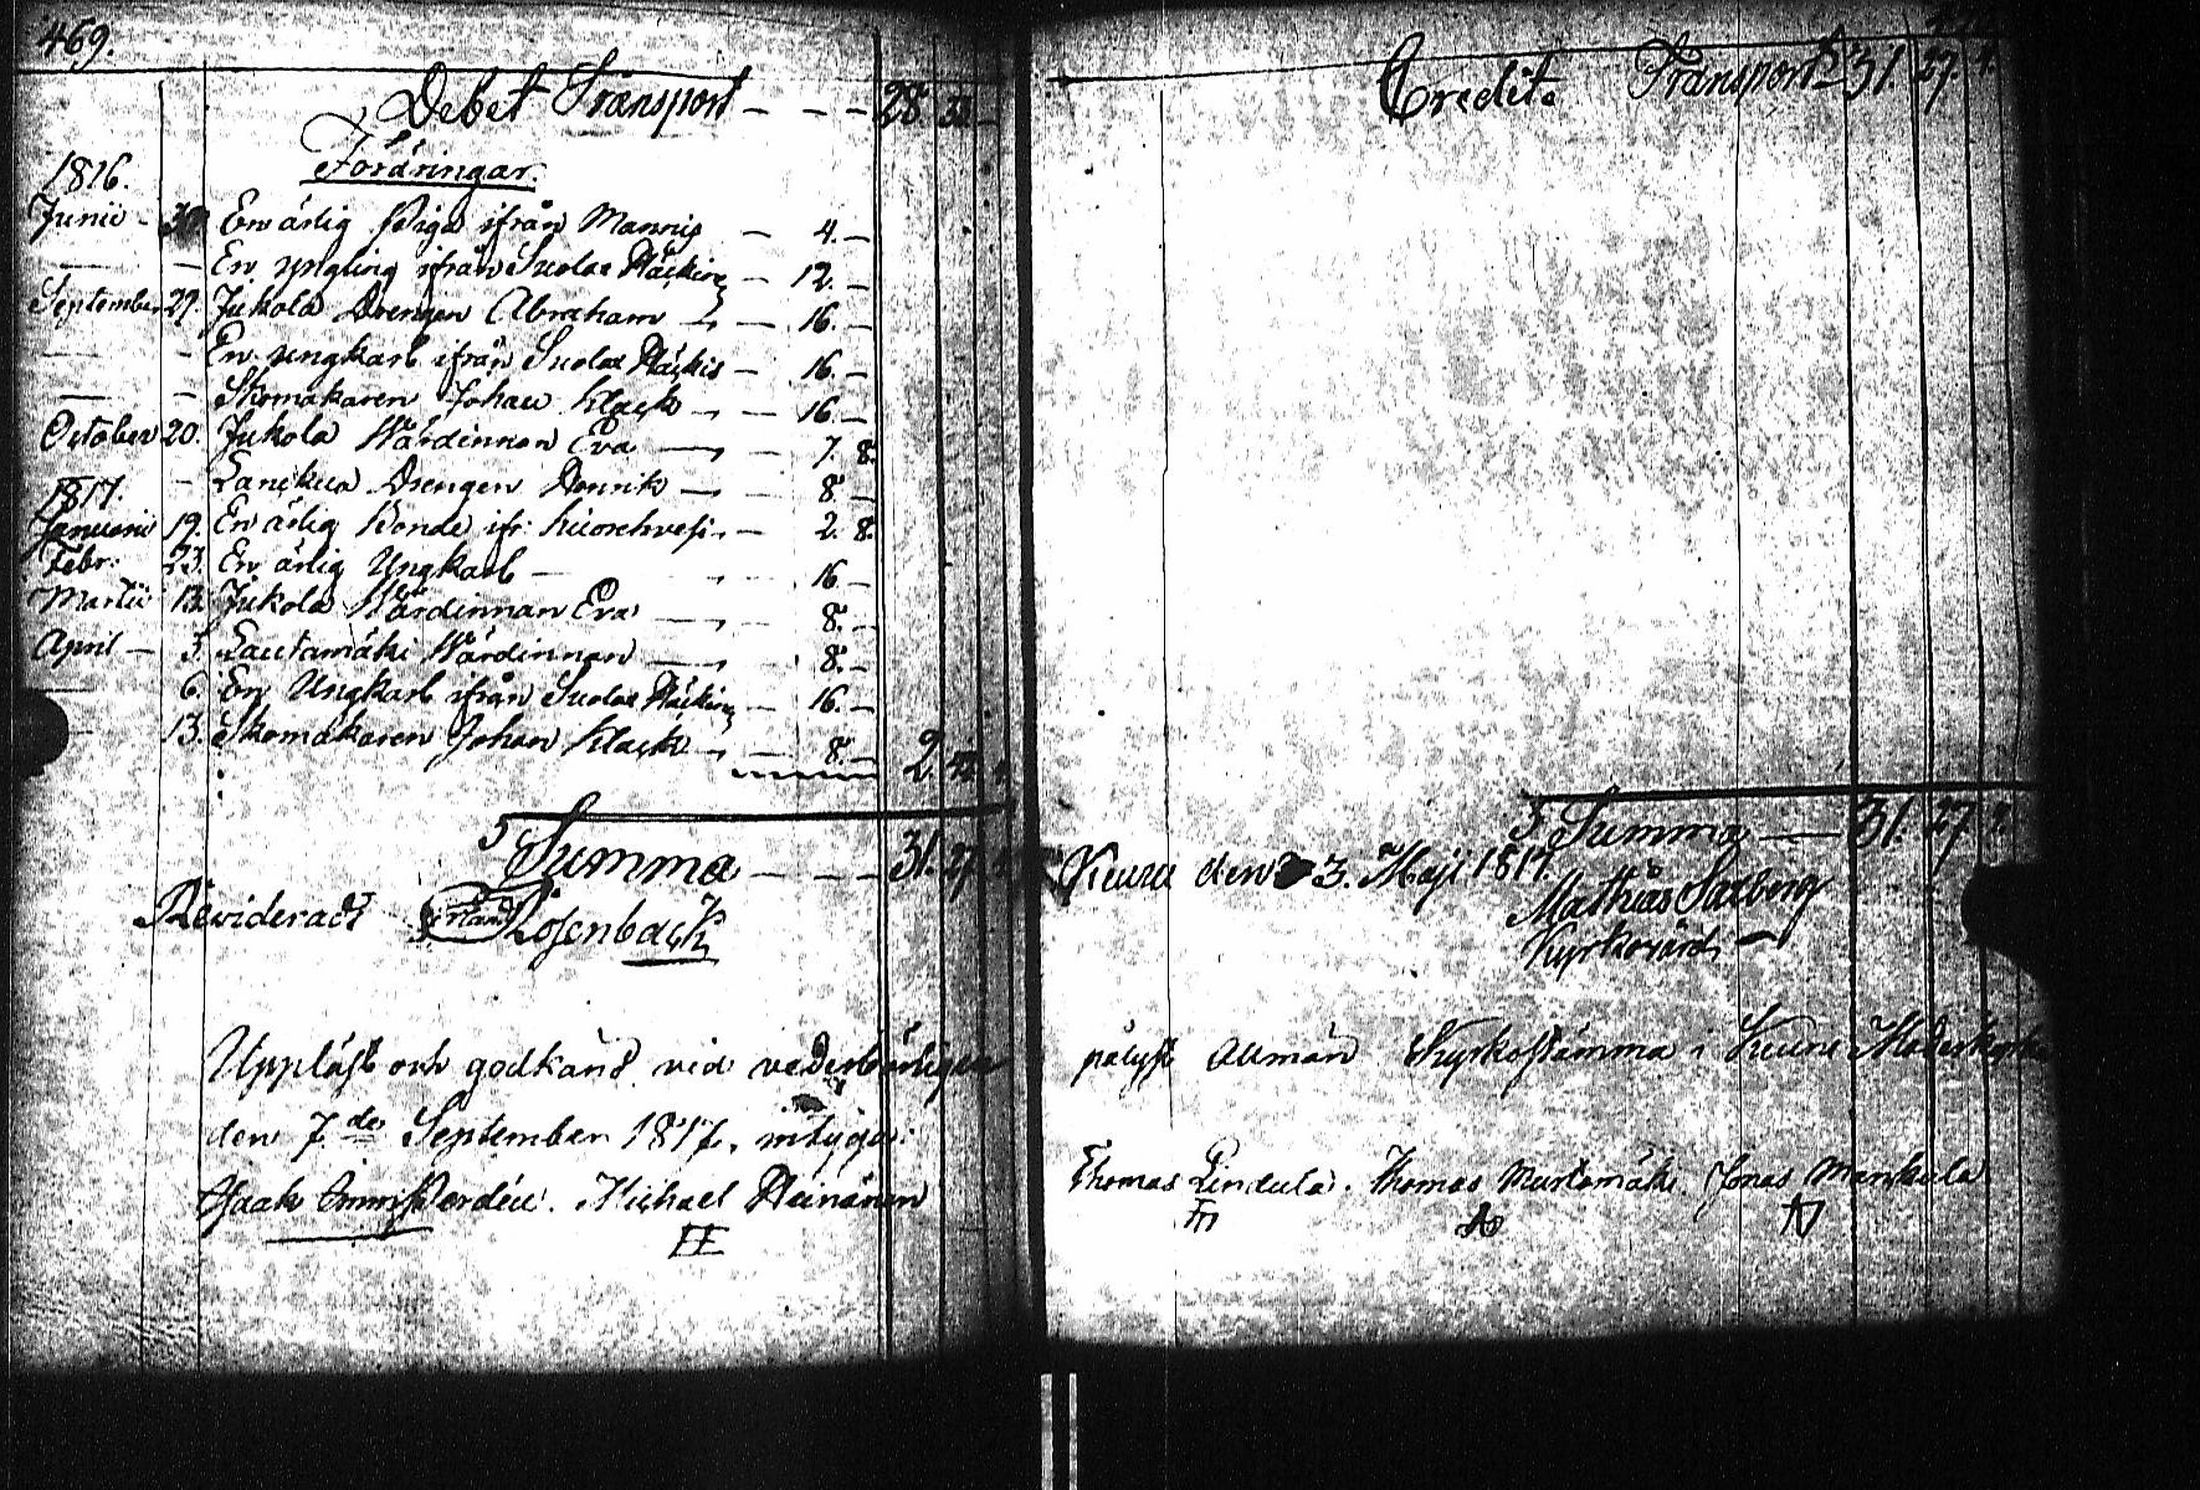 469.
Debet Transport - - - 28 33 -
Föräringar.
1816.
Junii - 30 En ärlig Piga ifrån Mannis - 4. -
- - En yngling ifrån Suolax - 12. -
September 29. Jukola Drengen Abraham - 16. -
- - En ungkarl ifrån Suolax - 16. -
- - Skomakaren Johan Klack - 16. -
October 20. Jukola Wärdinnan Eva - 7. 8.
- Drengen Henrik - 8 -
1817.
Januarii 19. En ärlig Bonde ifr: - 2. 8.
Febr. 23. En ärlig Ungkarl - 16 -
Martii 13. Jukola Wärdinnan Eva - 8. -
April - 3. Lautamäki Wärdinnan - 8. -
6. En Ungkarl ifrån Suolax - 16. -
13. Skomakaren Johan Klack - 8. - 2.
Summa - - - 31. 27.
Revideradt Rosenback
Uppläst och godkänd vid vederbörligen
den 7de September 1817, intyga:
Isaak Perdén. Michael Heinänen
Credit. Transport 31. 27. 4.
Summa - 31. 27.
Keuru den 3. Maji 1817.
Mathias Salberg
Kyrkovärd
pålyst Allmän Kyrkostämma i Keuru Moderkyrka
Thomas Lindula. Thomas Murtomäki. Jonas Mankula